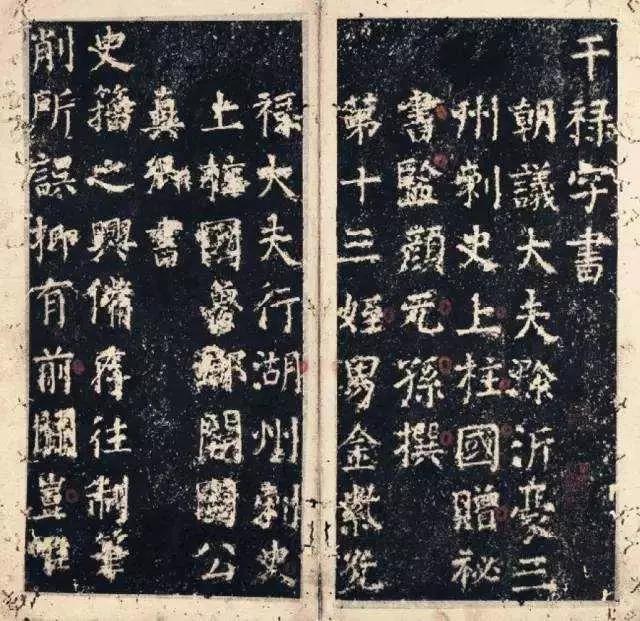 干禄字書
朝議大夫滁沂豪三
州刺史上柱國贈祕
書監顏元孫撰
第十三姪男金紫光
禄大夫行湖州刺史
上柱國魯郡開國公
真卿書
史籀之興備存往制筆
削所誤抑有前聞豈唯